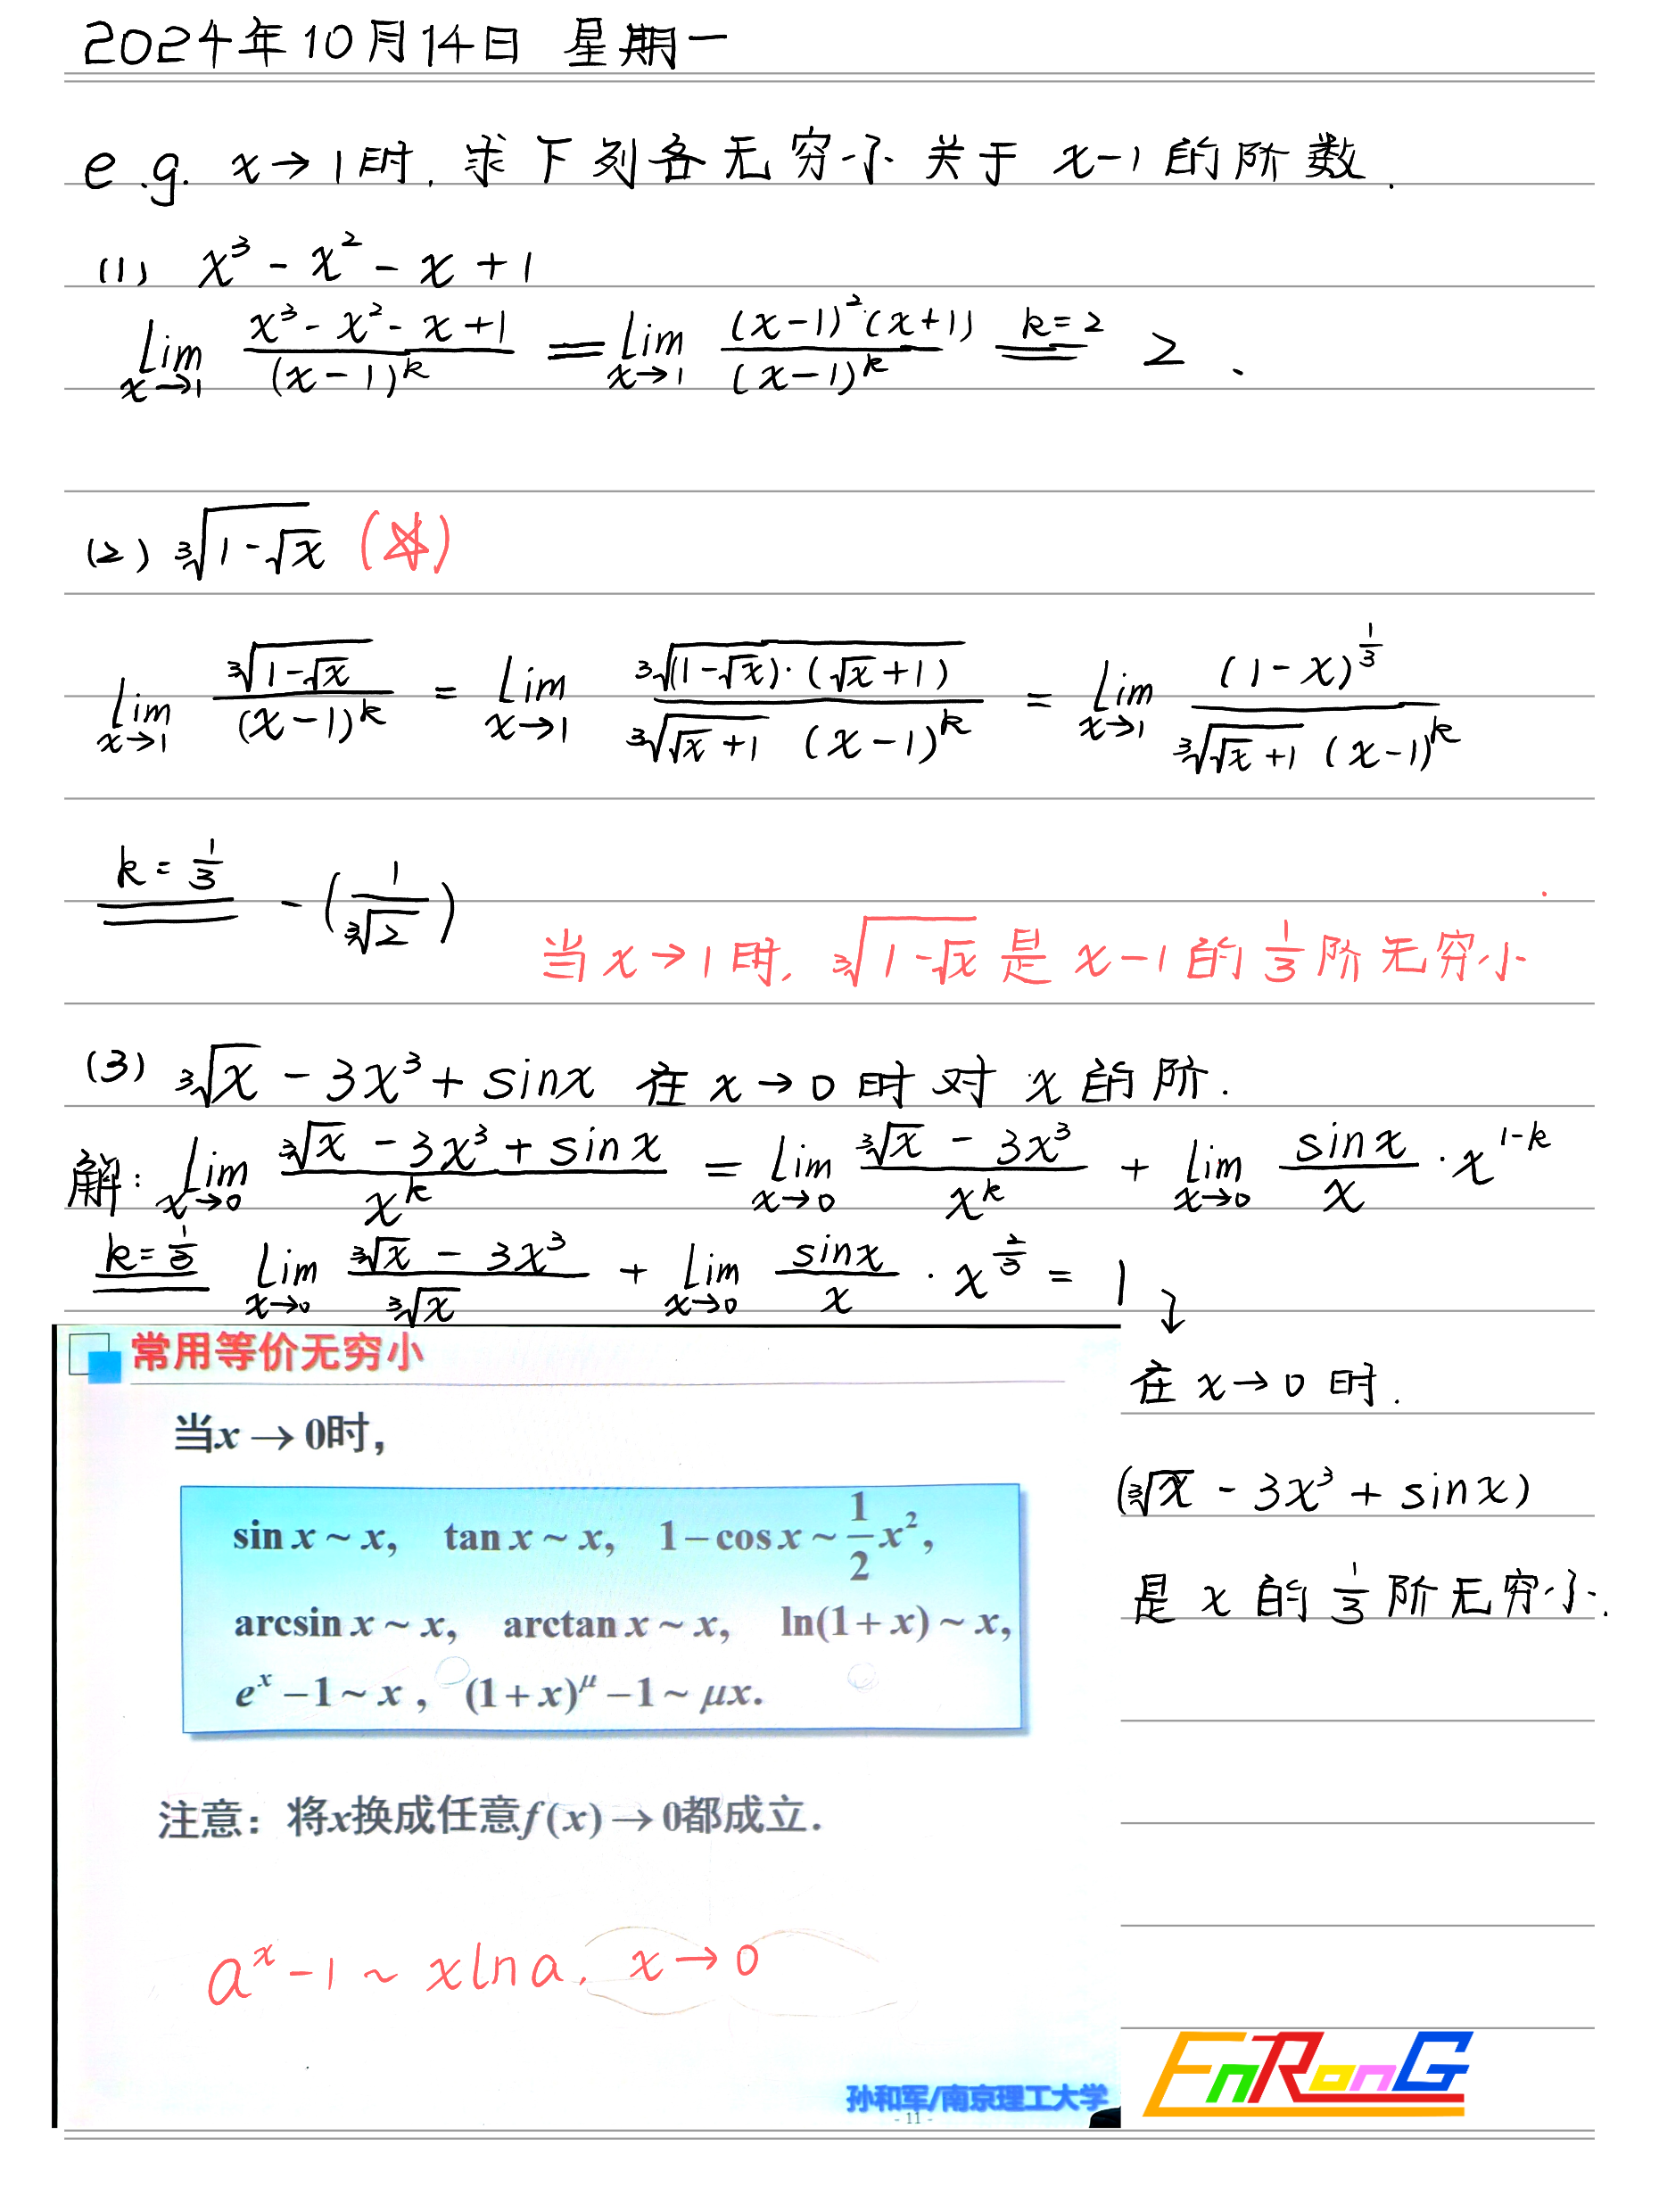 2024年10月14日 星期一
e.g. x→1时, 求下列各无穷小关于 x-1 的阶数.
(1) x³ - x² - x + 1
lim x→1 (x³ - x² - x + 1)/(x-1)^k = lim x→1 (x-1)²·(x+1)/(x-1)^k = (k=2) 2.
(2) ³√(1-√x) (☆)
lim x→1 ³√(1-√x)/(x-1)^k = lim x→1 ³√((1-√x)·(√x+1))/(³√(√x+1) (x-1)^k) = lim x→1 (1-x)^(1/3)/(³√(√x+1) (x-1)^k)
k=1/3 = -(1/³√2)
当 x→1时, ³√(1-√x) 是 x-1 的 1/3 阶无穷小
(3) ³√x - 3x³ + sinx 在 x→0 时对 x 的阶.
解: lim x→0 (³√x - 3x³ + sinx)/x^k = lim x→0 (³√x - 3x³)/x^k + lim x→0 sinx/x · x^(1-k)
k=1/3 = lim x→0 (³√x - 3x³)/³√x + lim x→0 sinx/x · x^(2/3) = 1
在 x→0 时.
(³√x - 3x³ + sinx)
是 x 的 1/3 阶无穷小.
常用等价无穷小
当x → 0时,
sin x ~ x, tan x ~ x, 1 - cos x ~ 1/2 x²,
arcsin x ~ x, arctan x ~ x, ln(1 + x) ~ x,
e^x - 1 ~ x , (1 + x)^μ - 1 ~ μx.
注意: 将x换成任意f(x) → 0都成立.
a^x - 1 ~ xlna, x→0
孙和军/南京理工大学
- 11 -
EnRonG